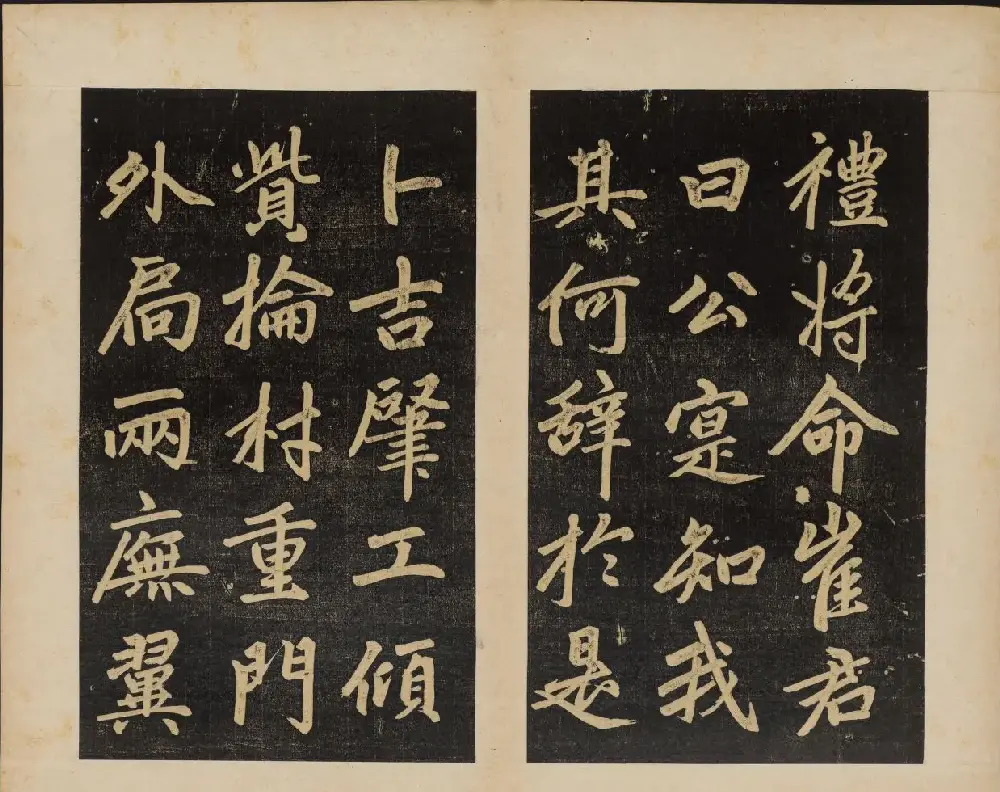 禮將命崔君
曰公寔知我
其何辭於是
卜吉肇工傾
貲掄材重門
外扃兩廡翼